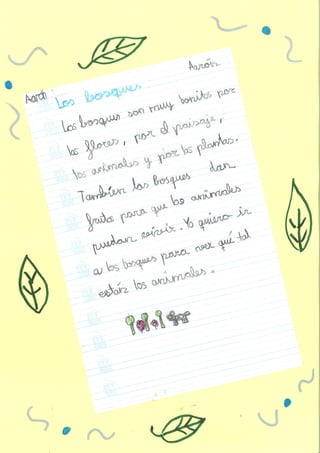 Aarón
Aarón
Los bosques
Los bosques son muy bonitos por
las flores, por el paisaje,
los animales y por las plantas.
También los bosques dan
fruta para que los animales
puedan vivir. Yo quiero ir
a los bosques para ver qué tal
están los animales.